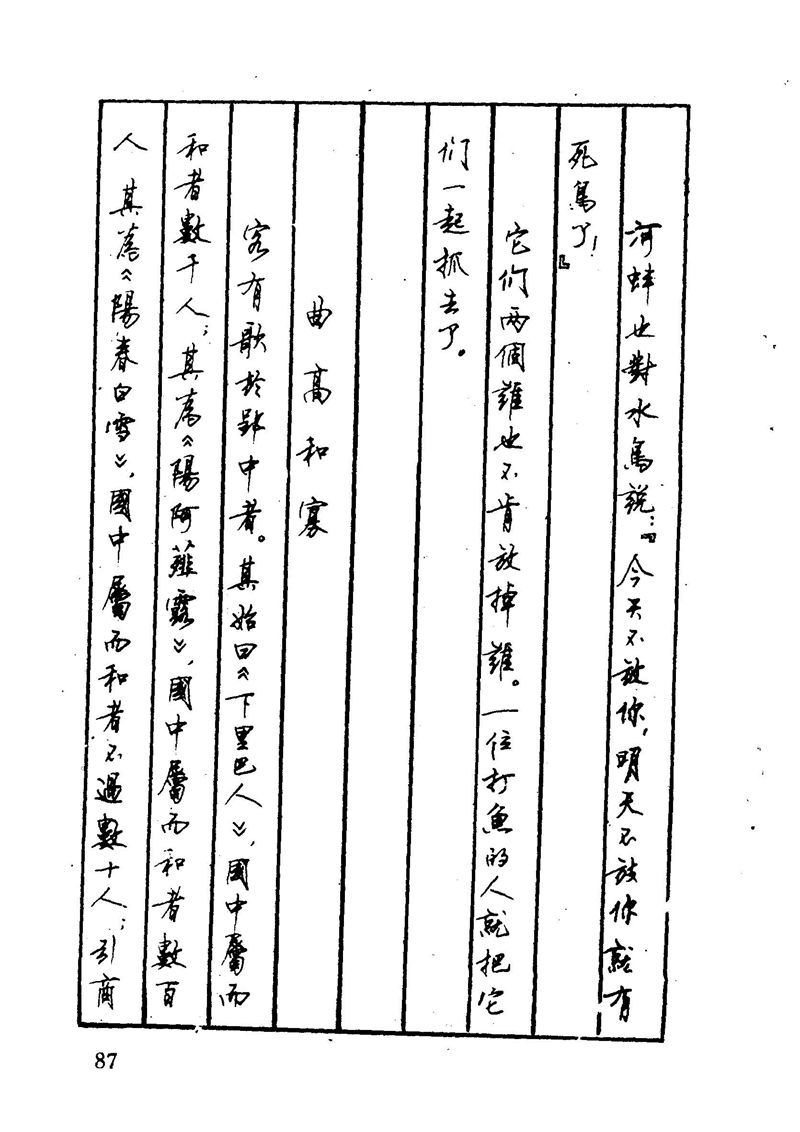 河蚌也對水鳥説：『今天不放你，明天不放你就有
死鳥了！』
它们两個誰也不肯放掉誰。一位打魚的人就把它
们一起抓去了。
曲高和寡
客有歌於郢中者。其始曰《下里巴人》，國中屬而
和者數千人；其為《陽阿薤露》，國中屬而和者數百
人 其為《陽春白雪》，國中屬而和者不過數十人；引商
87